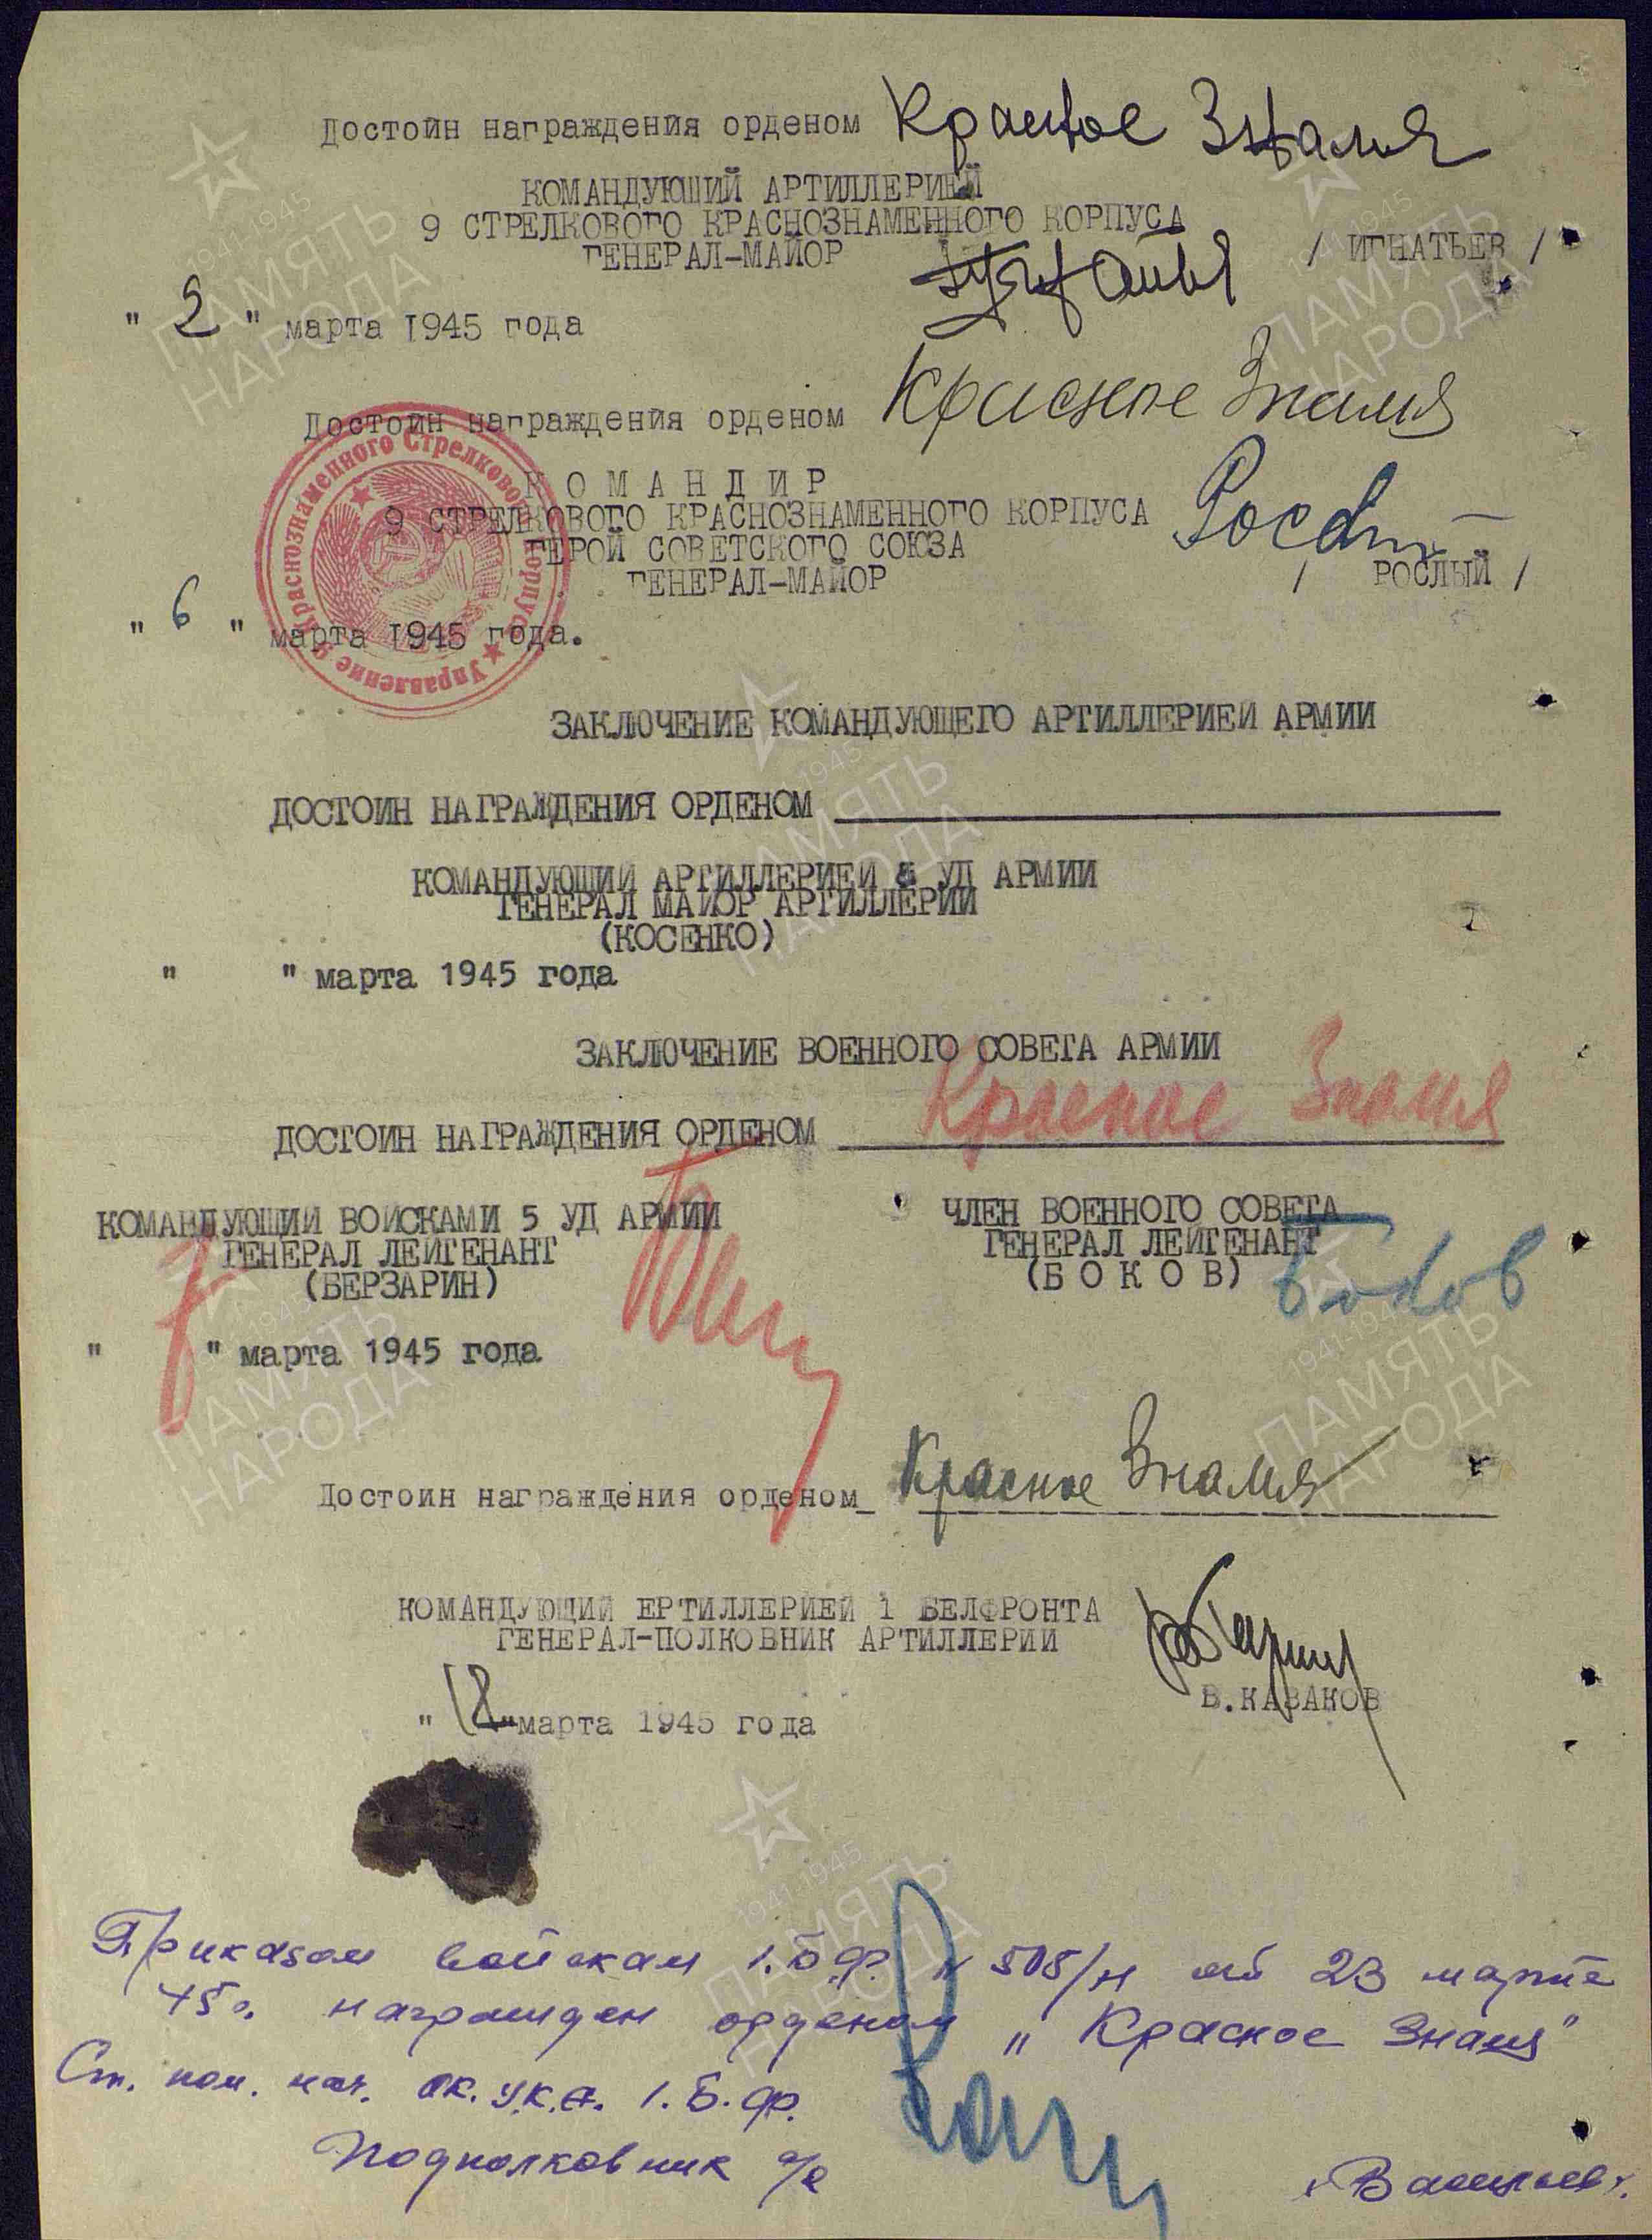 Достоин награждения орденом Красное Знамя
КОМАНДУЮШИЙ АРТИЛЛЕРИЕЙ
9 СТРЕЛКОВОГО КРАСНОЗНАМЕННОГО КОРПУСА
ГЕНЕРАЛ-МАЙОР / ИГНАТЬЕВ /
" 2 " марта 1945 года
Достоин награждения орденом Красное Знамя
К О М А Н Д И Р
9 СТРЕЛКОВОГО КРАСНОЗНАМЕННОГО КОРПУСА
ГЕРОЙ СОВЕТСКОГО СОЮЗА
ГЕНЕРАЛ-МАЙОР / РОСЛЫЙ /
" 6 " марта 1945 года.
Управление 9 Краснознаменного Стрелкового корпуса
ЗАКЛЮЧЕНИЕ КОМАНДУЮЩЕГО АРТИЛЛЕРИЕЙ АРМИИ
ДОСТОИН НАГРАЖДЕНИЯ ОРДЕНОМ
КОМАНДУЮЩИЙ АРТИЛЛЕРИЕЙ 5 УД АРМИИ
ГЕНЕРАЛ МАЙОР АРТИЛЛЕРИИ
(КОСЕНКО)
" " марта 1945 года
ЗАКЛЮЧЕНИЕ ВОЕННОГО СОВЕТА АРМИИ
ДОСТОИН НАГРАЖДЕНИЯ ОРДЕНОМ Красное Знамя
КОМАНДУЮЩИЙ ВОЙСКАМИ 5 УД АРМИИ
ГЕНЕРАЛ ЛЕЙТЕНАНТ
(БЕРЗАРИН)
ЧЛЕН ВОЕННОГО СОВЕТА
ГЕНЕРАЛ ЛЕЙТЕНАНТ
(Б О К О В) Боков
" 7 " марта 1945 года
Достоин награждения орденом Красное Знамя
КОМАНДУЮЩИЙ ЕРТИЛЛЕРИЕЙ 1 БЕЛФРОНТА
ГЕНЕРАЛ-ПОЛКОВНИК АРТИЛЛЕРИИ
В.КАЗАКОВ
" 18 " марта 1945 года
Приказом войскам 1.Б.Ф. № 505/н от 23 марта
45г. награжден орденом „ Красное Знамя"
Ст. пом. нач. ОК. У.К.А. 1.Б.Ф.
Подполковник а/с
1941-1945
ПАМЯТЬ
НАРОДА